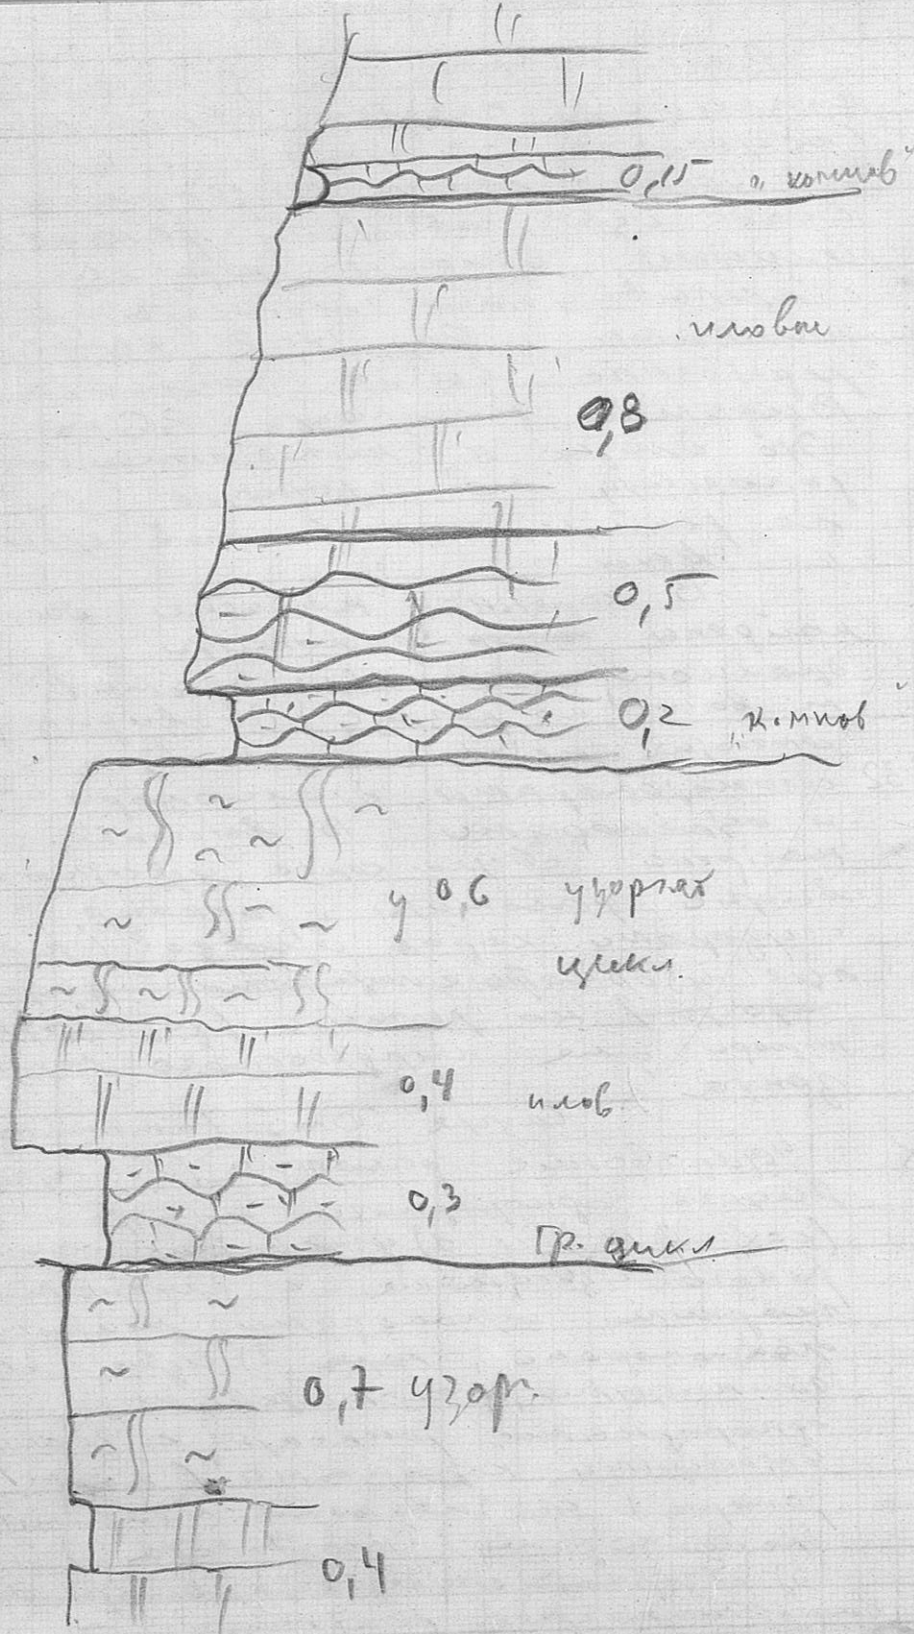 0,15
иловые
0,8
0,5
0,2 „комков“
у 0,6 узорчат
цикл.
0,4 илов.
0,3
Гр. цикл
0,7 узорч.
0,4